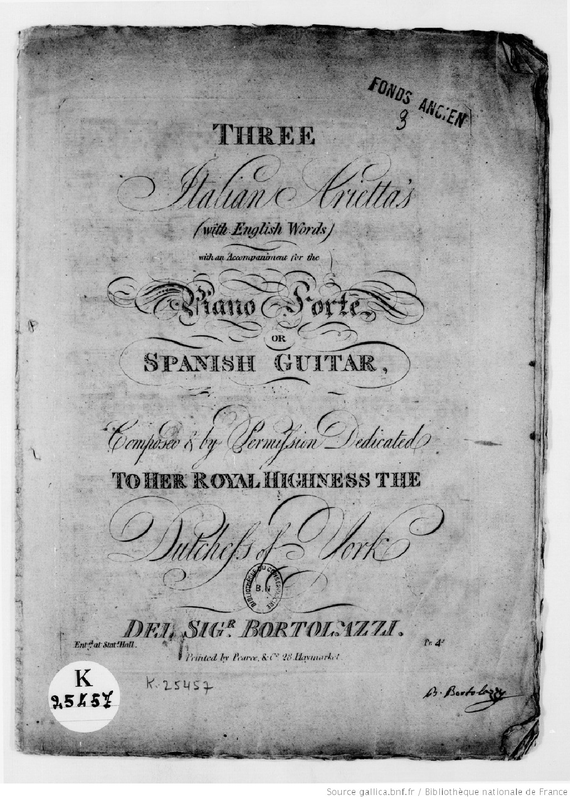 FONDS ANCIEN
3
THREE
Italian Arietta's
(with English Words)
with an Accompaniment for the
Piano Forte,
OR
SPANISH GUITAR,
Composed & by Permission Dedicated
TO HER ROYAL HIGHNESS THE
Dutchess of York
B.N
DEL SIGR. BORTOLAZZI.
Entd. at Statrs. Hall.
Pr. 4s
Printed by Pearce, & Co. 28 Haymarket.
K
25457
K. 25457
B. Bortolazzi
Source gallica.bnf.fr / Bibliothèque nationale de France